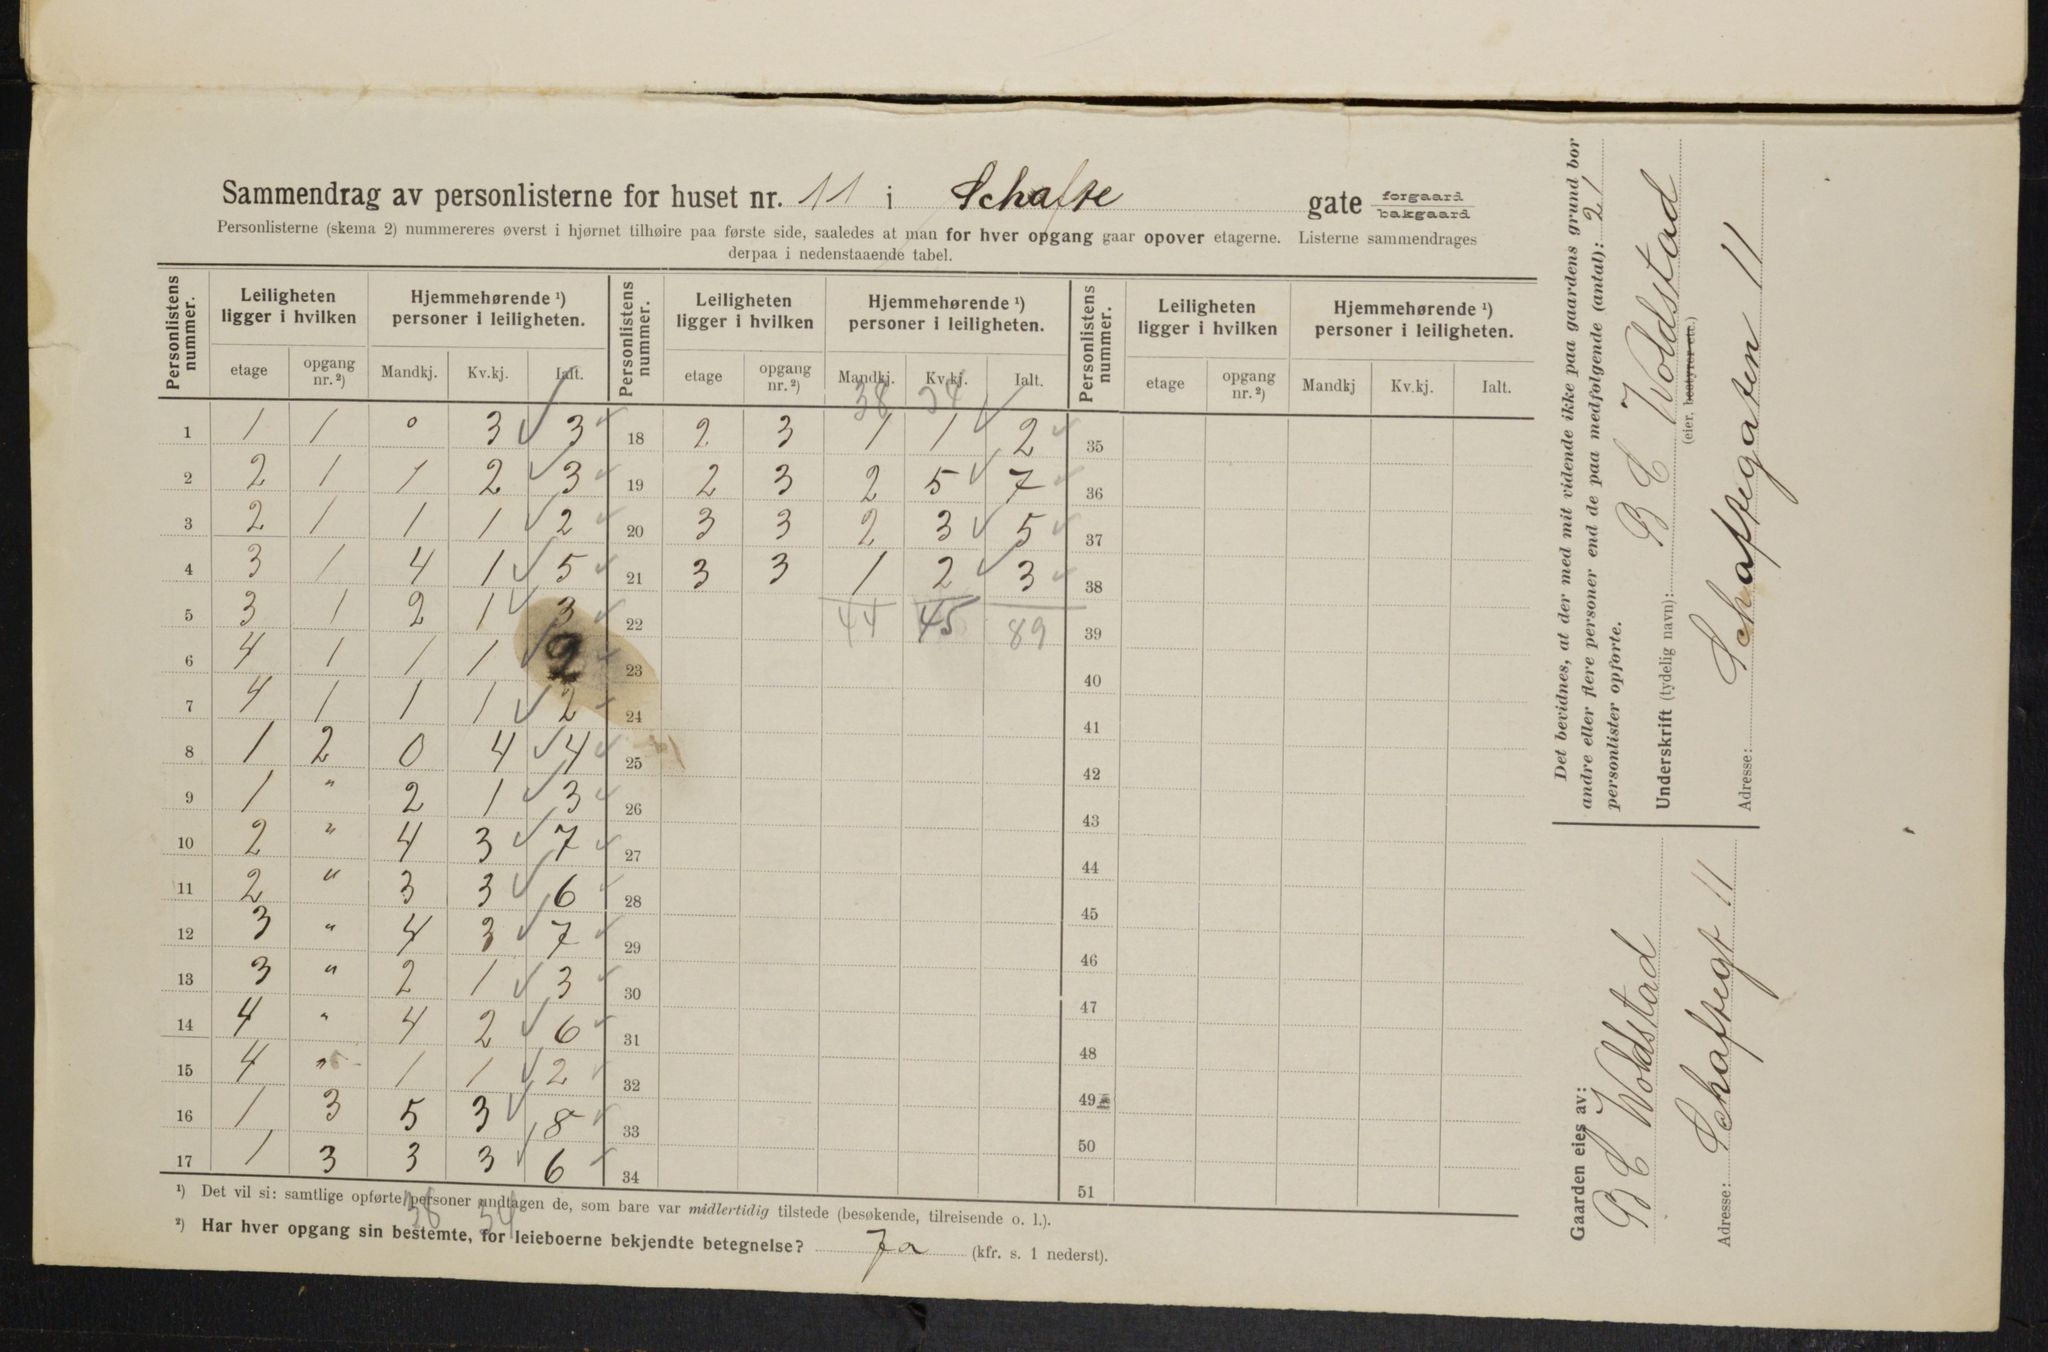 Sammendrag av personlisterne for huset nr. 11 i Schafte gate forgaard bakgaard
Personlisterne (skema 2) nummereres øverst i hjørnet tilhøire paa første side, saaledes at man for hver opgang gaar opover etagerne. Listerne sammendrages
derpaa i nedenstaaende tabel.
Personlistens nummer. | Leiligheten ligger i hvilken | Hjemmehørende ¹) personer i leiligheten. | Personlistens nummer. | Leiligheten ligger i hvilken | Hjemmehørende ¹) personer i leiligheten. | Personlistens nummer. | Leiligheten ligger i hvilken | Hjemmehørende ¹) personer i leiligheten.
etage | opgang nr.²) | Mandkj. | Kv.kj. | Ialt. | etage | opgang nr.²) | Mandkj. | Kv.kj. | Ialt. | etage | opgang nr.²) | Mandkj | Kv.kj. | Ialt.
38 34
1 1 1 0 3 ✓ 3 ✓ 18 2 3 1 1 ✓ 2 ✓ 35
2 2 1 1 2 ✓ 3 ✓ 19 2 3 2 5 ✓ 7 ✓ 36
3 2 1 1 1 ✓ 2 ✓ 20 3 3 2 3 ✓ 5 ✓ 37
4 3 1 4 1 ✓ 5 ✓ 21 3 3 1 2 ✓ 3 ✓ 38
5 3 1 2 1 ✓ 3 ✓ 22 44 45 89 39
6 4 1 1 1 ✓ 2 ✓ 23 40
7 4 1 1 1 ✓ 2 ✓ 24 41
8 1 2 0 4 ✓ 4 ✓ 25 42
9 1 " 2 1 ✓ 3 ✓ 26 43
10 2 " 4 3 ✓ 7 ✓ 27 44
11 2 " 3 3 ✓ 6 ✓ 28 45
12 3 " 4 3 ✓ 7 ✓ 29 46
13 3 " 2 1 ✓ 3 ✓ 30 47
14 4 " 4 2 ✓ 6 ✓ 31 48
15 4 " 1 1 ✓ 2 ✓ 32 49
16 1 3 5 3 ✓ 8 ✓ 33 50
17 1 3 3 3 ✓ 6 ✓ 34 51
38 34
¹) Det vil si: samtlige opførte personer undtagen de, som bare var midlertidig tilstede (besøkende, tilreisende o. l.).
²) Har hver opgang sin bestemte, for leieboerne bekjendte betegnelse? Ja (kfr. s. 1 nederst).
Det bevidnes, at der med mit vidende ikke paa gaardens grund bor
andre eller flere personer end de paa medfølgende (antal): 21
personlister opførte.
Underskrift (tydelig navn): B C Woldstad
(eier, bestyrer etc.)
Adresse: Schaftegaten 11
Gaarden eies av:
B C Woldstad
Adresse: Schaftegt 11